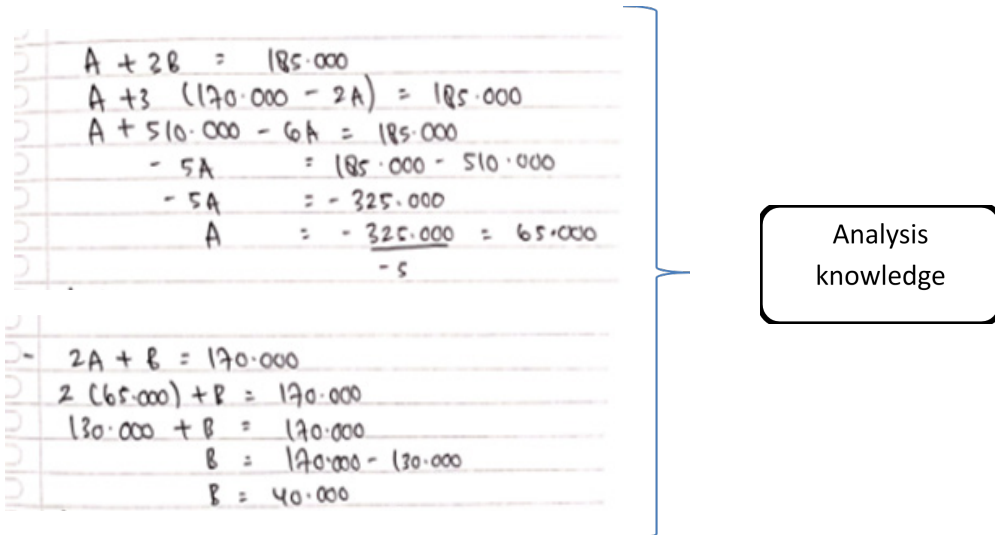 A + 3B = 185.000
A + 3 (170.000 - 2A) = 185.000
A + 510.000 - 6A = 185.000
- 5A = 185.000 - 510.000
- 5A = - 325.000
A = - 325.000 = 65.000
- 5
- 2A + B = 170.000
2 (65.000) + B = 170.000
130.000 + B = 170.000
B = 170.000 - 130.000
B = 40.000
Analysis
knowledge